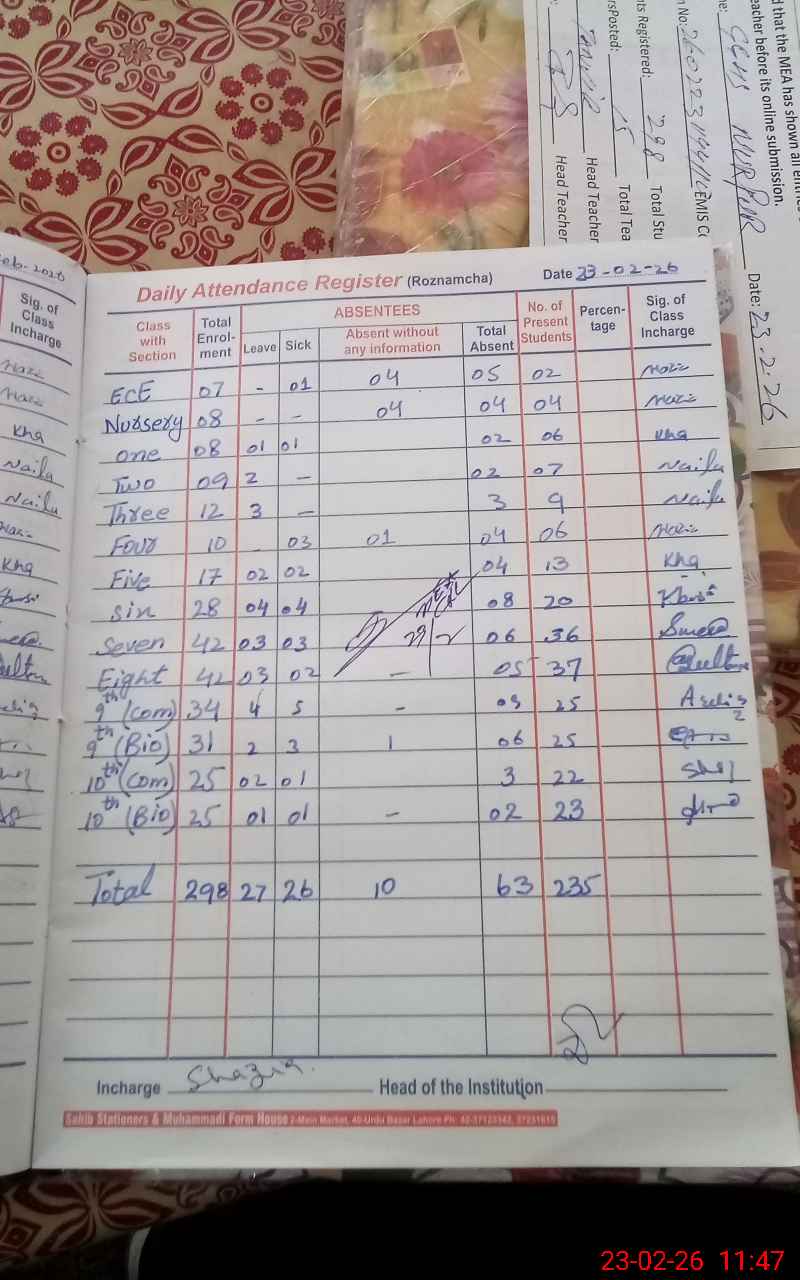 d that the MEA has shown all entries
eacher before its online submission.
GGHS NURPUR
Date: 23-2-26
EMIS Co
nts Registered: 298 Total Stu
rsPosted: 15 Total Tea
Head Teacher
Head Teacher
eb-2026
Sig. of
Class
Incharge
Kha
Naila
Naila
Kha
Daily Attendance Register (Roznamcha) Date 23-02-26
Class with Section Total Enrol-ment ABSENTEES Leave Sick Absent without any information Total Absent No. of Present Students Percen-tage Sig. of Class Incharge
ECE 07 - 01 04 05 02
Nursery 08 - - 04 04 04
one 08 01 01 02 06 Kha
Two 09 2 - 02 07 Naila
Three 12 3 - 3 9 Naila
Four 10 - 03 01 04 06
Five 17 02 02 04 13 Kha
Six 28 04 04 08 20
Seven 42 03 03 06 36
Eight 42 03 02 - 05 37
9th (com) 34 4 5 - 09 25
9th (Bio) 31 2 3 1 06 25
10th (com) 25 02 01 3 22
10th (Bio) 25 01 01 - 02 23
Total 298 27 26 10 63 235
Incharge Shazia Head of the Institution
Sahib Stationers & Muhammadi Form House 2-Main Market, 40-Urdu Bazar Lahore Ph: 42-37123347, 37231615
23-02-26 11:47